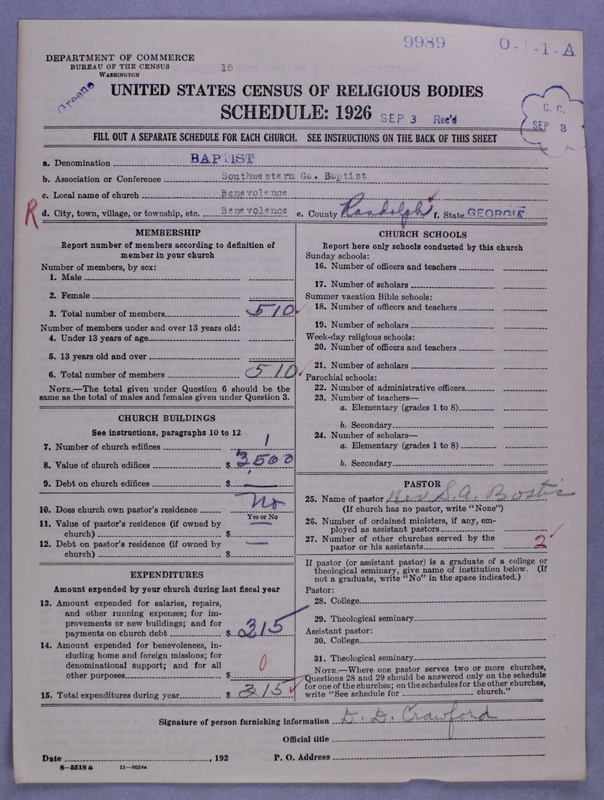 9989 0-1-1-A
DEPARTMENT OF COMMERCE
BUREAU OF THE CENSUS
WASHINGTON
15
Greene
UNITED STATES CENSUS OF RELIGIOUS BODIES
SCHEDULE: 1926
SEP 3 Rec'd
C. C.
SEP 3
FILL OUT A SEPARATE SCHEDULE FOR EACH CHURCH. SEE INSTRUCTIONS ON THE BACK OF THIS SHEET
a. Denomination BAPTIST
b. Association or Conference Southwestern Ga. Baptist
c. Local name of church Benevolence
R d. City, town, village, or township, etc. Benevolence e. County Randolph f. State GEORGIA
MEMBERSHIP
Report number of members according to definition of
member in your church
Number of members, by sex:
1. Male
2. Female
3. Total number of members 510
Number of members under and over 13 years old:
4. Under 13 years of age
5. 13 years old and over
6. Total number of members 510
NOTE.—The total given under Question 6 should be the
same as the total of males and females given under Question 3.
CHURCH BUILDINGS
See instructions, paragraphs 10 to 12
7. Number of church edifices 1
8. Value of church edifices $ 3,500
9. Debt on church edifices $ —
10. Does church own pastor's residence No
Yes or No
11. Value of pastor's residence (if owned by
church) $ —
12. Debt on pastor's residence (if owned by
church) $ —
EXPENDITURES
Amount expended by your church during last fiscal year
13. Amount expended for salaries, repairs,
and other running expenses; for im-
provements or new buildings; and for
payments on church debt $ 315
14. Amount expended for benevolences, in-
cluding home and foreign missions; for
denominational support; and for all
other purposes $ 0
15. Total expenditures during year $ 315
CHURCH SCHOOLS
Report here only schools conducted by this church
Sunday schools:
16. Number of officers and teachers
17. Number of scholars
Summer vacation Bible schools:
18. Number of officers and teachers
19. Number of scholars
Week-day religious schools:
20. Number of officers and teachers
21. Number of scholars
Parochial schools:
22. Number of administrative officers
23. Number of teachers—
a. Elementary (grades 1 to 8)
b. Secondary
24. Number of scholars—
a. Elementary (grades 1 to 8)
b. Secondary
PASTOR
25. Name of pastor Rev. S. A. Bostic
(If church has no pastor, write "None")
26. Number of ordained ministers, if any, em-
ployed as assistant pastors
27. Number of other churches served by the
pastor or his assistants 2
If pastor (or assistant pastor) is a graduate of a college or
theological seminary, give name of institution below. (If
not a graduate, write "No" in the space indicated.)
Pastor:
28. College
29. Theological seminary
Assistant pastor:
30. College
31. Theological seminary
NOTE.—Where one pastor serves two or more churches,
Questions 28 and 29 should be answered only on the schedule
for one of the churches; on the schedules for the other churches,
write "See schedule for church."
Signature of person furnishing information D. D. Crawford
Official title
Date , 192 P. O. Address
8—5518 a 11—9054a